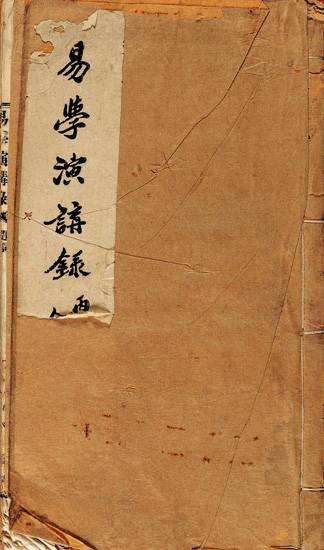 易學演講錄
易學演講錄